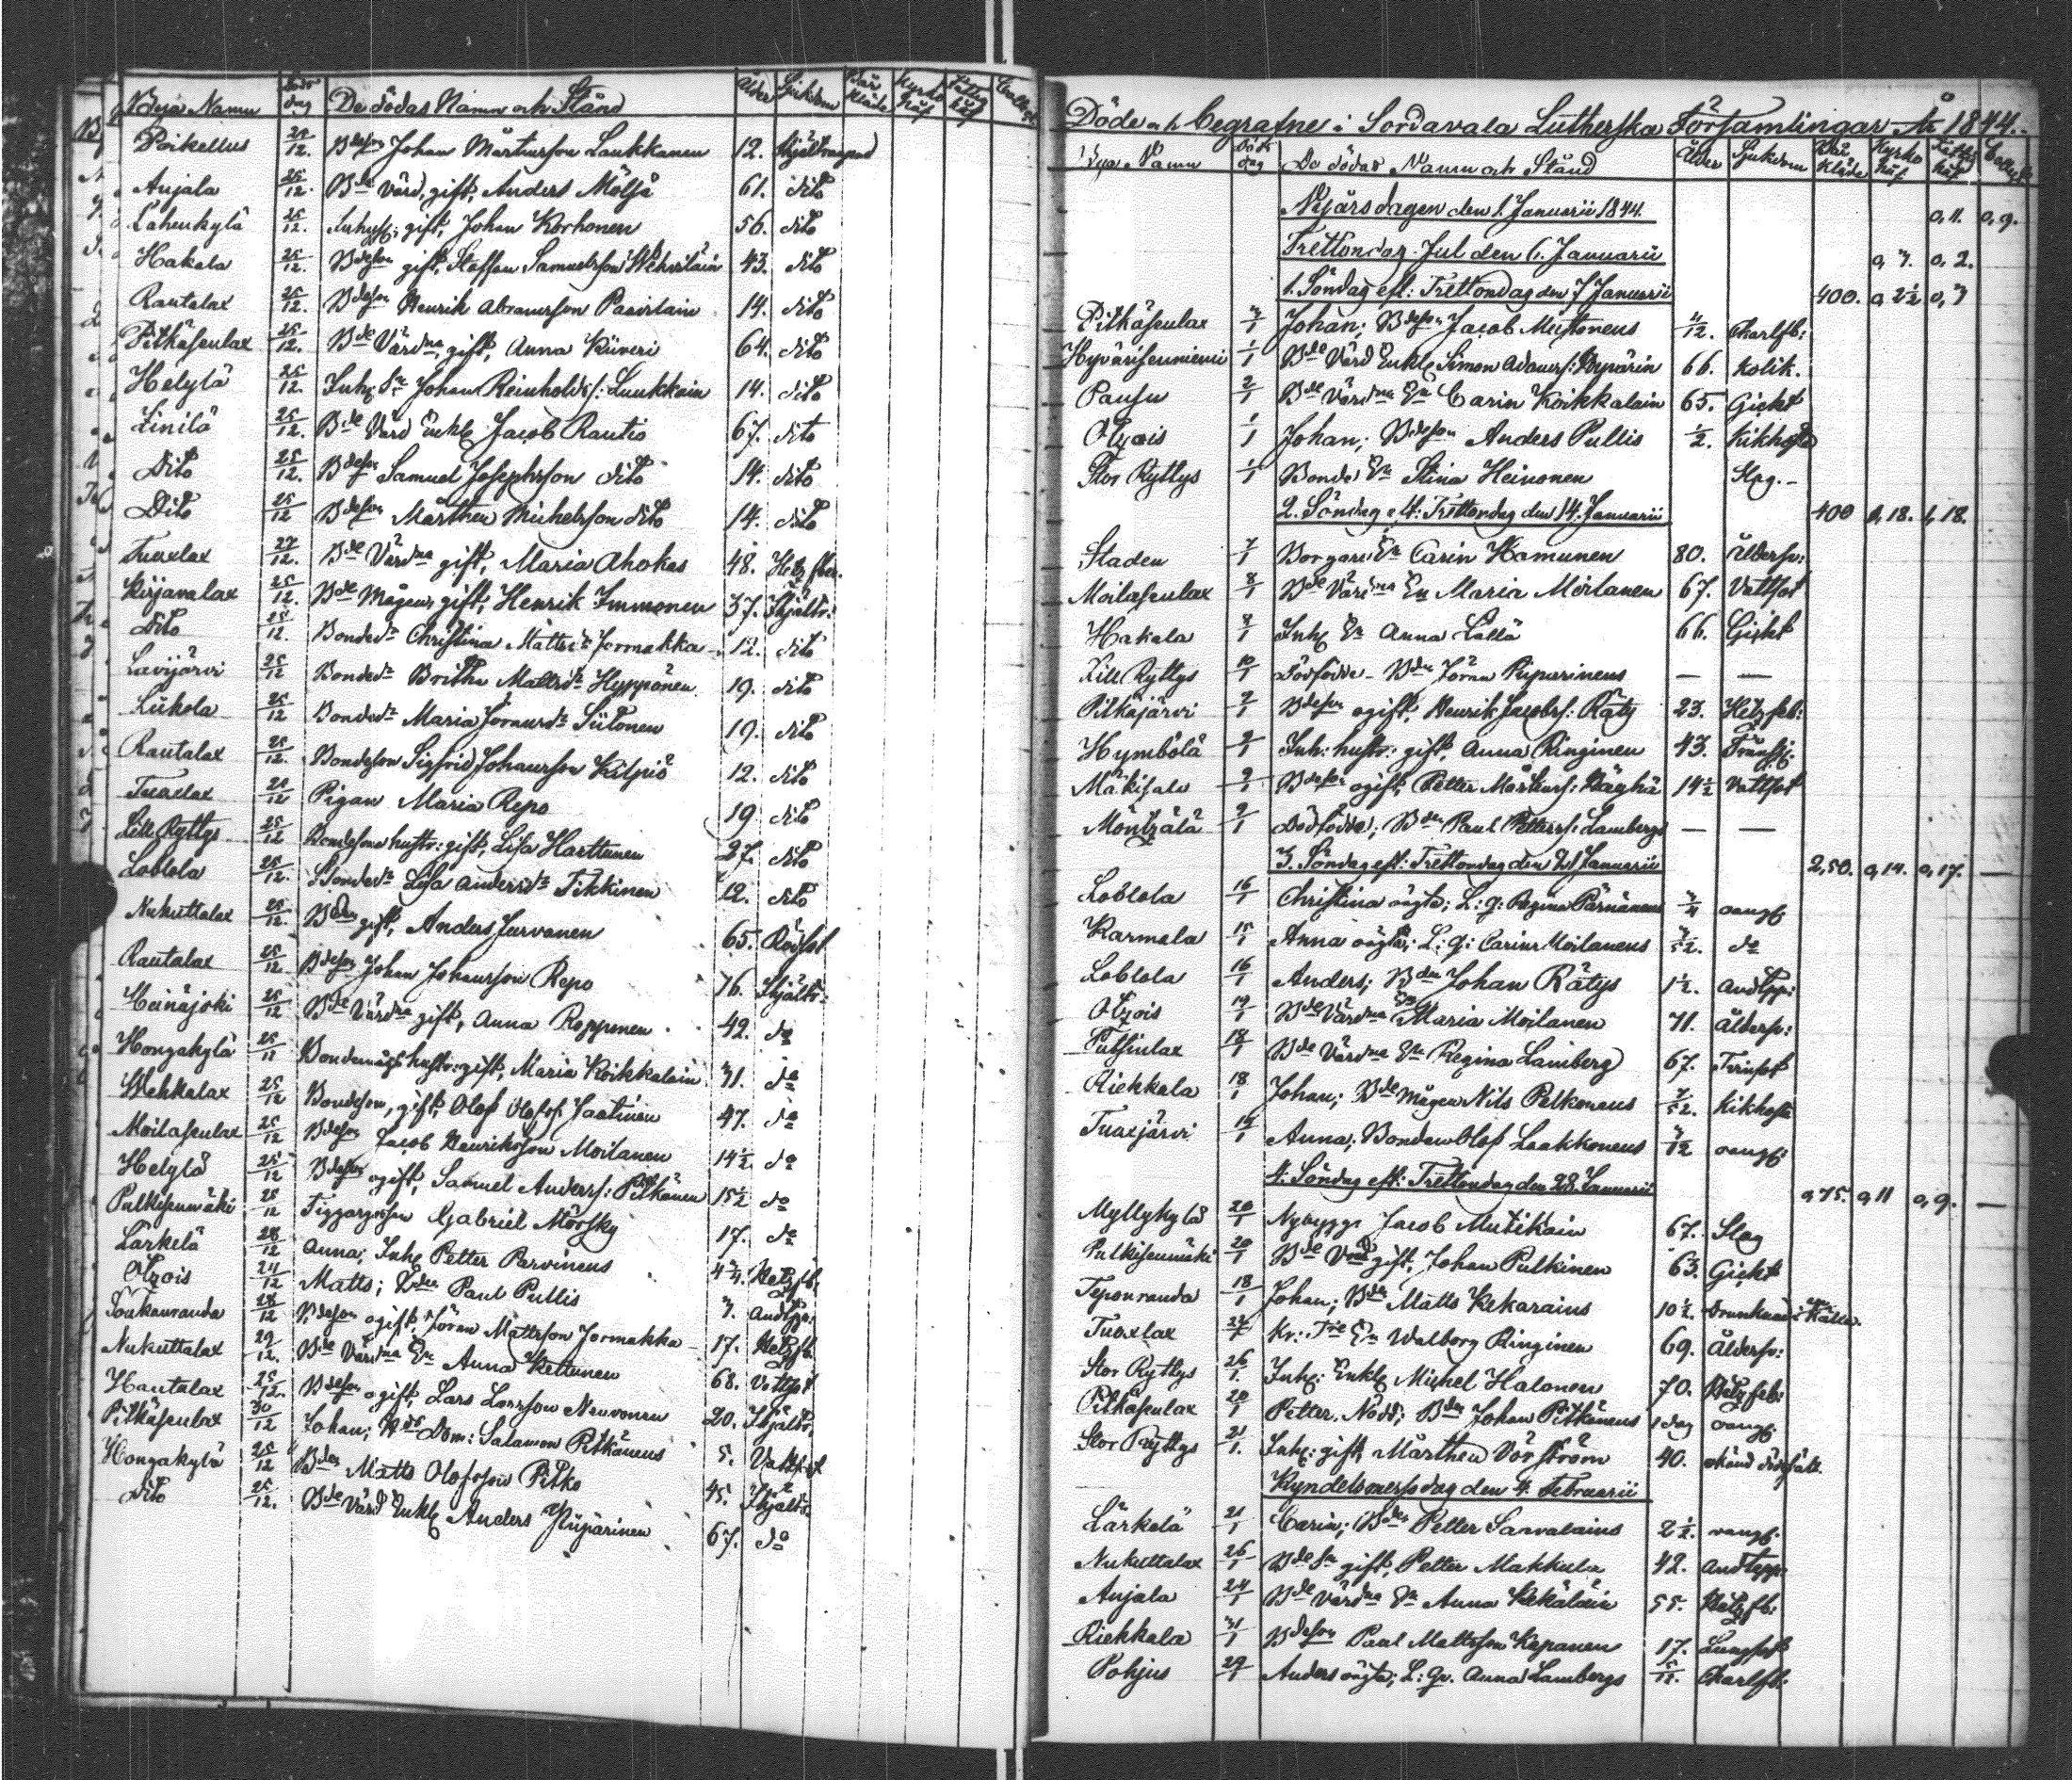 Byns Namn Döds dag De dödas Namn och Stånd Ålder Sjukdom Bår kläde Kyrko håf Fattig håf
Poikellus 25/12. Bdeson Johan Mårtensson Laukkanen 12. ihjältrampad
Anjala 25/12. Bde Värd, gift, Anders Mölsä 61. dito
Lahenkylä 25/12. Inhys: gift, Johan Korhonen 56. dito
Hakala 25/12. Bdeson gift, Staffan Samuelsson Wehviläin 43. dito
Rautalax 25/12. Bdeson Henrik Abramsson Paavilain 14. dito
Pitkäsenlax 25/12. Bde Värdna, gift, Anna Kiiveri 64. dito
Helylä 25/12. Inhs Sn Johan Reinholdss: Luukkain 14. dito
Linilä 25/12. Bde Värd Enkl Jacob Rautio 67. dito
Dito 25/12. Bdeson Samuel Josephsson dito 14. dito
Dito 25/12 Bdeson Mårthen Michelsson dito 14. dito
Tuoxlax 27/12. Bde Värdna gift, Maria Ahokas 48. Hetz feb:
Kirjavalax 25/12. Bde Mågen, gift, Henrik Immonen 37. Ihjältr:
Dito 25/12. Bondedr Christina Mattsdr Jormakka 12. dito
Lavijärvi 25/12 Bondedr Britha Mattsdr Hyppönen 19. dito
Liikola 25/12 Bondedr Maria Jöransdr Siitonen 19. dito
Rautalax 25/12. Bondeson Sigfrid Johansson Kilpiö 12. dito
Tuoxlax 25/12 Pigan Maria Repo 19 dito
Lill Ryttys 25/12 Bondesons hustr: gift, Lisa Harttunen 27. dito
Loblola 25/12. Bondedr Lisa Andersdr Tikkinen 12. dito
Nukuttalax 25/12. Bden gift, Anders Jurvanen 65. Rödsot
Rautalax 25/12 Bdeson Johan Johansson Repo 76. Ihjältr:
Heinäjoki 25/12 Bde Värdna gift, Anna Ropponen 42. do
Hongakylä 25/12 Bondemågs hustr: gift, Maria Koikkalain 71. do
Wehkalax 25/12 Bondeson, gift, Olof Olofss: Jaatinen 47. do
Moilasenlax 25/12 Bdeson Jacob Henriksson Moilanen 14½ do
Helylä 25/12 Bdeson ogift, Samuel Anderss: Pitkänen 15½ do
Pulkisenmäki 25/12 Tiggargosse Gabriel Mörsky 17. do
Lärkelä 28/12 Anna; Inhs Petter Parvinens Hetzfb:
Otzois 24/12 Matts; Bden Paul Pullis 7. Andtpp:
Toukanranda 28/12 Bdeson ogift, Jöran Mattsson Jormakka 17. Hetzfb.
Nukuttalax 29/12. Bde Värdna En Anna Kettunen 68. Vattsot
Hautalax 25/12. Bdeson ogift, Lars Larsson Neuvonen 20. Ihjältr:
Pitkäsenlax 30/12 Johan; Bde Dom: Salamon Pitkänens 5. Vattsot
Hongakylä 25/12 Bden Matts Olofsson Pitko 45. Ihjältr:
Dito 25/12. Bde Värd Enkl Anders Piipärinen 67. do
Döde och Begrafne i Sordavala Lutherska Församlingar År 1844.
Byns Namn Döds dag De dödas Namn och Stånd Ålder Sjukdom Bår kläde Kyrko håf Fattig håf
Nyårsdagen den 1. Januarii 1844. 0,11. 0,9.
Trettondag Jul den 6. Januarii 0,7. 0,2.
1. Söndag eft: Trettondag den 7 Januarii 400. 0,2½ 0,7
Pitkäsenlax Johan; Bdeson Jacob Mustonens Charlfb:
Hyvärisenniemi 1/1 Bde Värd Enkl Simon Adamss: Hyvärin 66. Kolik.
Pausu 2/1 Bde Värdna En Carin Koikkalain 65. Gickt
Otzois 1/1 Johan; Bdeson Anders Pullis ½. Kikhosta
Stor Ryttys 1/1 Bonde En Stina Heinonen Slag.
2. Söndag eft: Trettondag den 14. Januarii 400 1,18. 1,18.
Staden 7/1 Borgare En Carin Hamunen 80. Åldersv:
Moilasenlax 8/1 Bde Värdna En Maria Moilanen 67. Vattsot
Hakala 7/1 Inhs En Anna Lällä 66. Gickt
Lill Ryttys 10/1 Dödfödde Bden Jöran Ripurinens — —
Pitkäjärvi 7/1 Bdeson ogift, Henrik Jacobss: Räty 23. Hetzfeb:
Hymbölä 9/1 Inh: hustr: gift, Anna Ringinen 43. Trånsj:
Mäkisalo 9/1 Bdeson ogift, Petter Mårtenss: 14½ Vattsot
Möntzälä 9/1 Dödfödde; Bden Paul Petterss: Lambergs — —
3. Söndag eft: Trettondag den 21 Januarii 2,50. 0,14. 0,17.
Loblola 16/1 Christina oägta; L: q: Regina Pärnänens oangf:
Karmala 15/1 Anna oägta; L: q: Carin Moilanens do
Loblola 16/1 Anders; Bden Johan Rätys 1½. Andtpp:
Otzois 19/1 Bde Värdna En Maria Moilanen 71. Åldersv:
Putsinlax 18/1 Bde Värdna En Regina Lamberg 67. Tvinsot
Riekkala 18/1 Johan; Bde Mågen Nils Pelkonens Kikhosta
Tuoxjärvi 19/1 Anna; Bonden Olof Laakkonens oangf:
4. Söndag eft: Trettondag den 28. Januarii 0,75. 0,11 0,9.
Myllykylä 20/1 Nybygg: Jacob Mutikain 67. Slag
Pulkisenmäki 20/1 Bde Värd gift, Johan Pulkinen 63. Gickt
Teponranda 18/1 Johan; Bden Matts Kekarains 10½. Drunknad i en Källa.
Tuoxlax Kr: En Walborg Ringinen 69. Åldersv:
Stor Ryttys 26/1. Inhs: Enkl Michel Halonen 70. Hetzfeb:
Pitkäsenlax 20/1 Petter, Nödd; Bden Johan Pitkänens 1 dag oangf:
Stor Ryttys 21/1. Inhs: gift, Mårthen Vörström 40.
Kyndelsmessodag den 4. Februarii
Lärkelä 21/1 Carin; Bden Petter Saavalains 2½. oangf:
Nukuttalax 26/1 Bde Sn gift, Petter Makkula 42. Andtepp:
Anjala 24/1 Bde Värdna En Anna Kekäläin 55. Hetzfb:
Riekkala Bdeson Paul Mattsson Kapanen 17. Lungsot
Pohjus 29/1 Anders oägta; L: Qv. Anna Lambergs Charlfb: